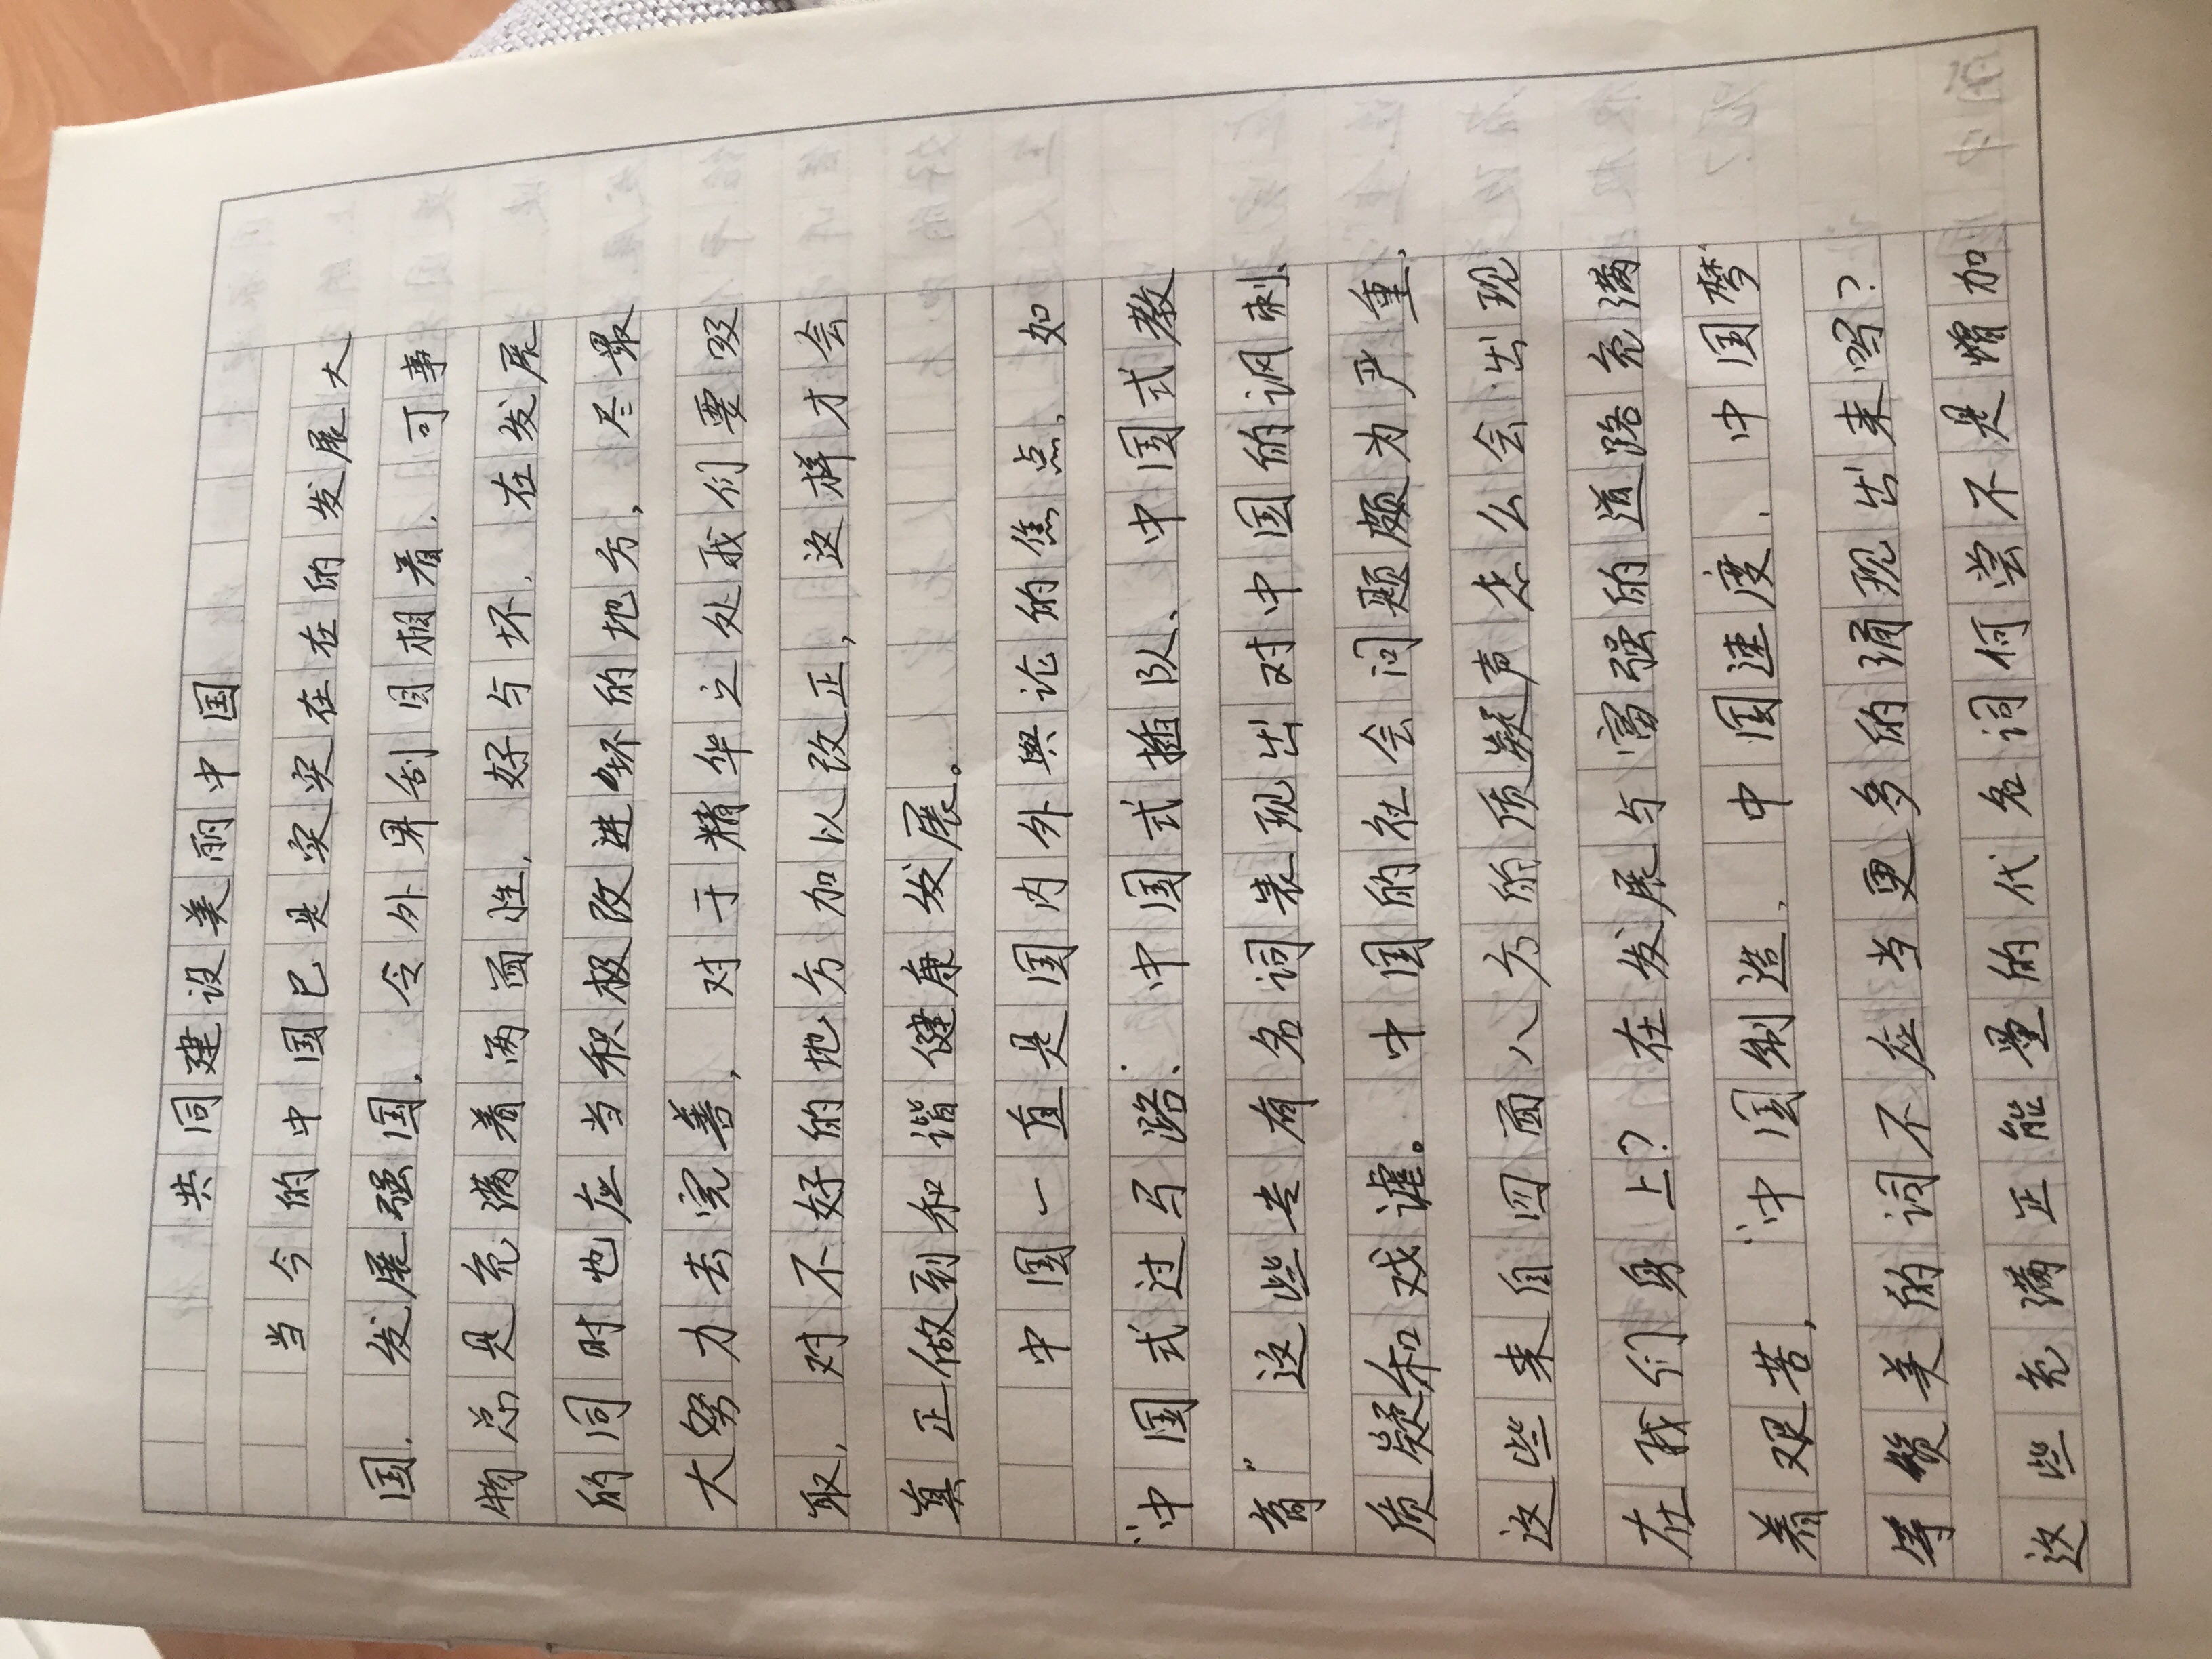 共同建设美丽中国
当今的中国已是实实在在的发展大
国，发展强国，令外界刮目相看，可事
物总是充满着两面性，好与坏，在发展
的同时也应当积极改进坏的地方，尽最
大努力去完善，对于精华之处我们要吸
取，对不好的地方加以改正，这样才会
真正做到和谐健康发展。
中国一直是国内外舆论的焦点，如
“中国式过马路、中国式插队、中国式教
育”这些专有名词表现出对中国的讽刺、
质疑和戏谑。中国的社会问题颇为严重，
这些来自四面八方的质疑声怎么会出现
在我们身上？在发展与富强的道路充满
着艰苦，“中国制造、中国速度、中国梦”
等赞美的词不应当更多的涌现出来吗？
这些充满正能量的代名词何尝不是增加